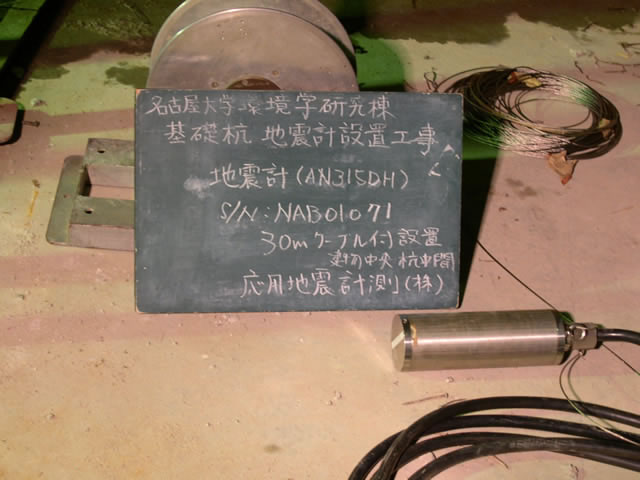 名古屋大学環境学研究棟
基礎杭 地震計設置工事
地震計(AN315DH)
S/N:NAB01071
30mケーブル付設置
建物中央 杭中間
応用地震計測(株)